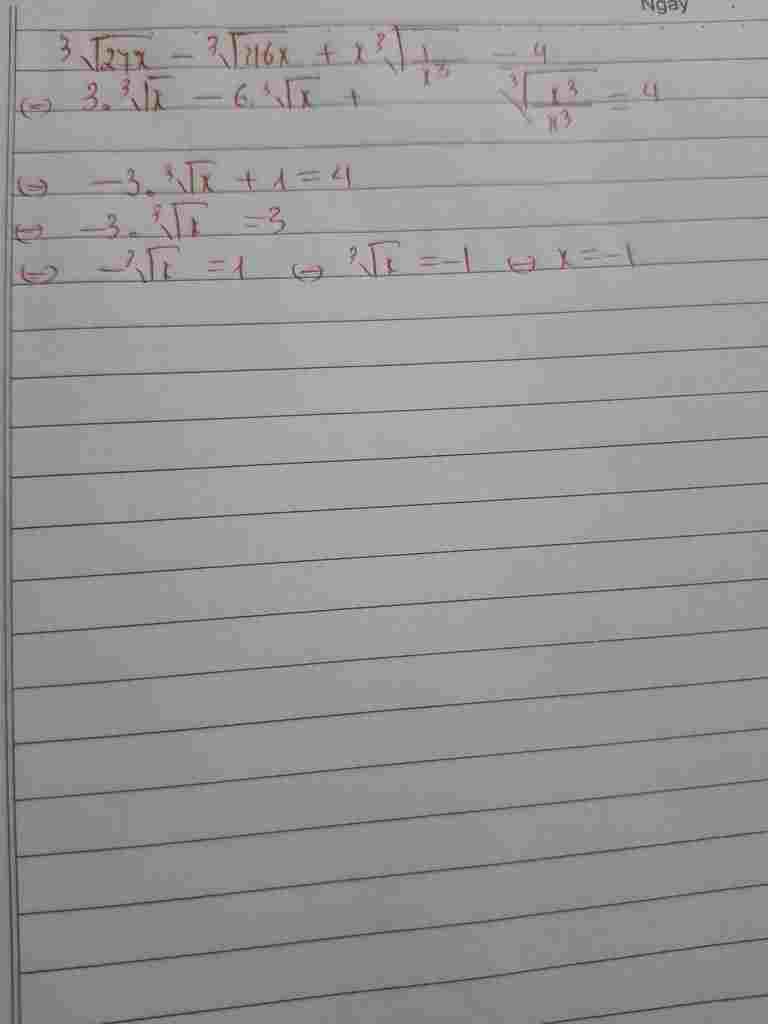 Ngày
³√27x − ³√216x + x ³√(1/x³) = 4
⇔ 3.³√x − 6.³√x + ³√(x³/x³) = 4
⇔ −3.³√x + 1 = 4
⇔ −3.³√x = 3
⇔ −³√x = 1 ⇔ ³√x = −1 ⇔ x = −1